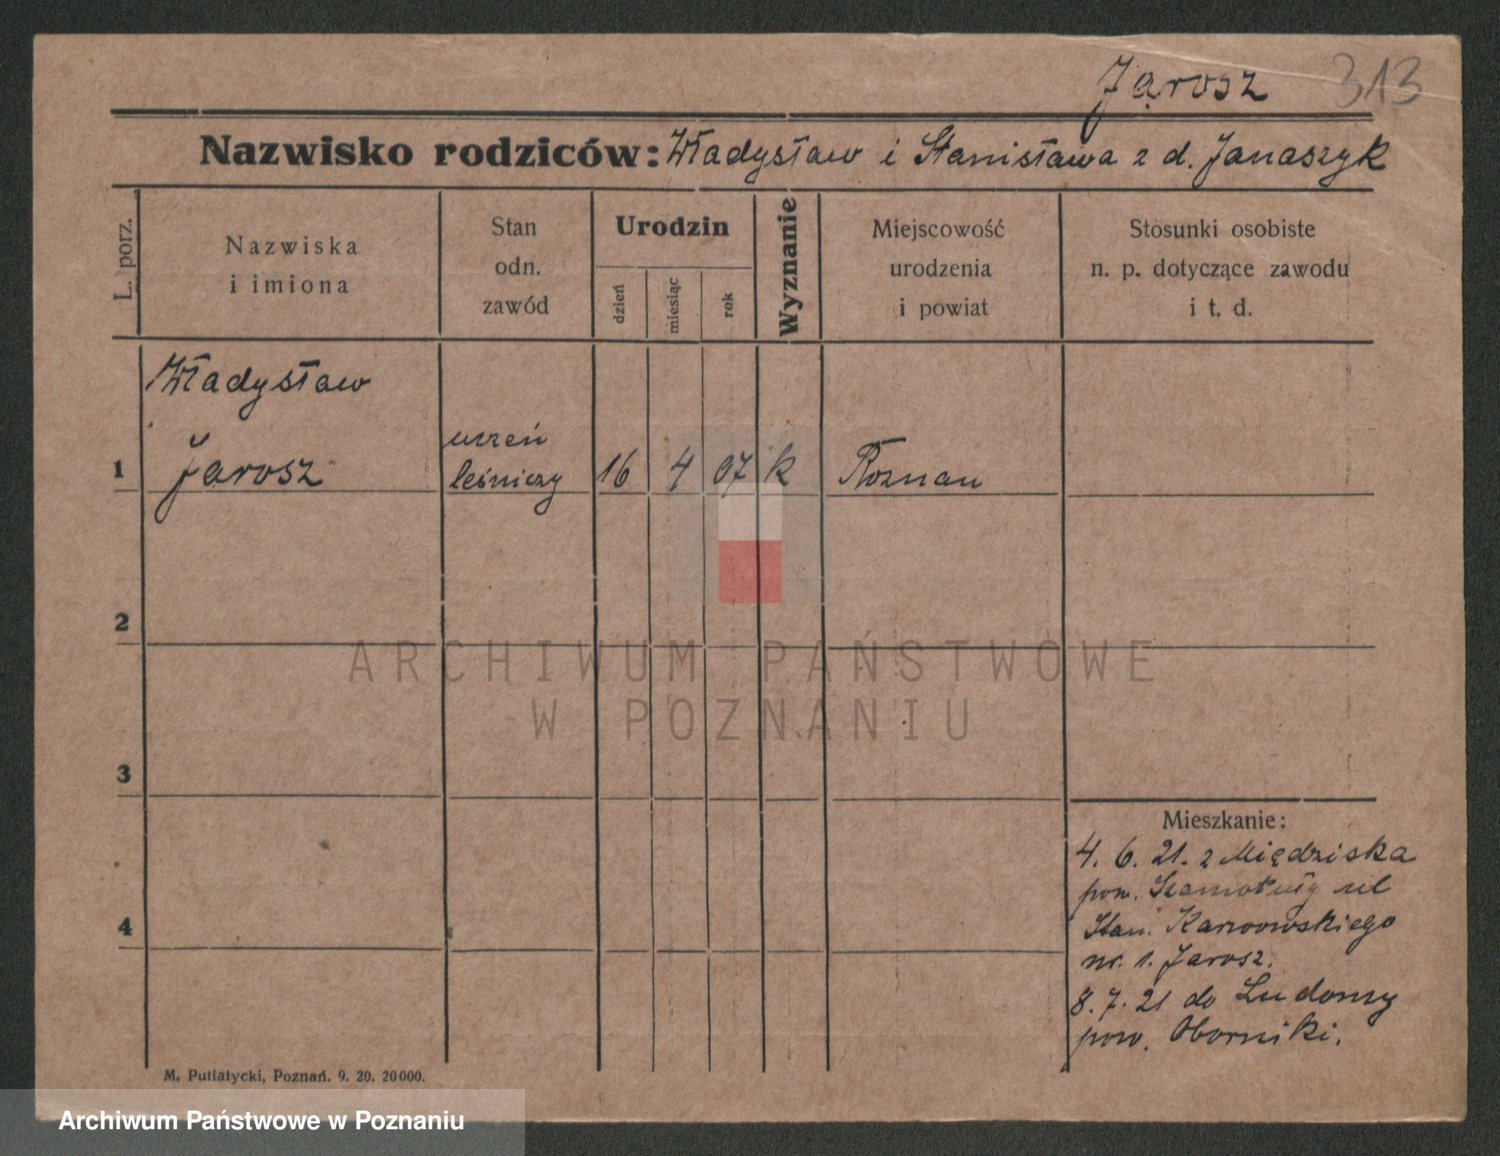 Jarosz 313
Nazwisko rodziców: Władysław i Stanisława z d. Janaszyk
L. porz.
Nazwiska
i imiona
Stan
odn.
zawód
Urodzin
dzień
miesiąc
rok
Wyznanie
Miejscowość
urodzenia
i powiat
Stosunki osobiste
n. p. dotyczące zawodu
i t. d.
Władysław
1 Jarosz
uczeń
leśniczy
16 4 07 k Poznan
2
ARCHIWUM PAŃSTWOWE
W POZNANIU
3
4
Mieszkanie:
4. 6. 21. z Miedziska
pow. Szamotuły ul
Stan. Karwowskiego
nr. 1. Jarosz.
8. 7. 21 do Ludomy
pow. Oborniki.
M. Putiatycki, Poznań. 9. 20. 20000.
Archiwum Państwowe w Poznaniu